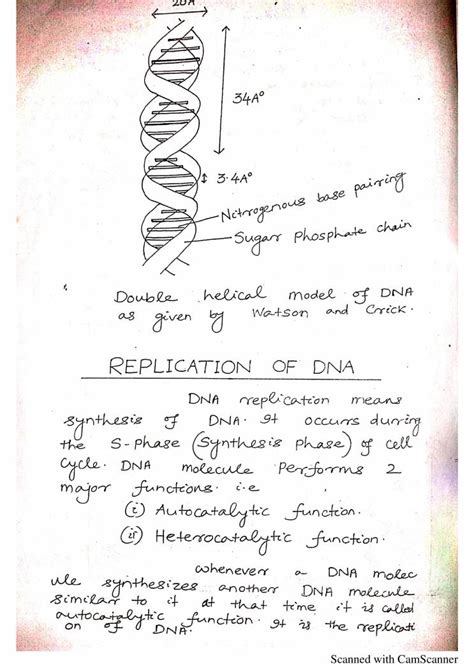 20A
34A°
3.4A°
Nitrogenous base pairing
Sugar Phosphate chain
Double helical model of DNA
as given by Watson and Crick.
REPLICATION OF DNA
DNA replication means
synthesis of DNA. It occurs during
the S-phase (Synthesis phase) of cell
cycle. DNA molecule performs 2
major functions. i.e
(i) Autocatalytic function.
(ii) Heterocatalytic function.
whenever a DNA molec
ule synthesizes another DNA molecule
similar to it at that time it is called
autocatalytic function. It is the replicati
on of DNA.
Scanned with CamScanner